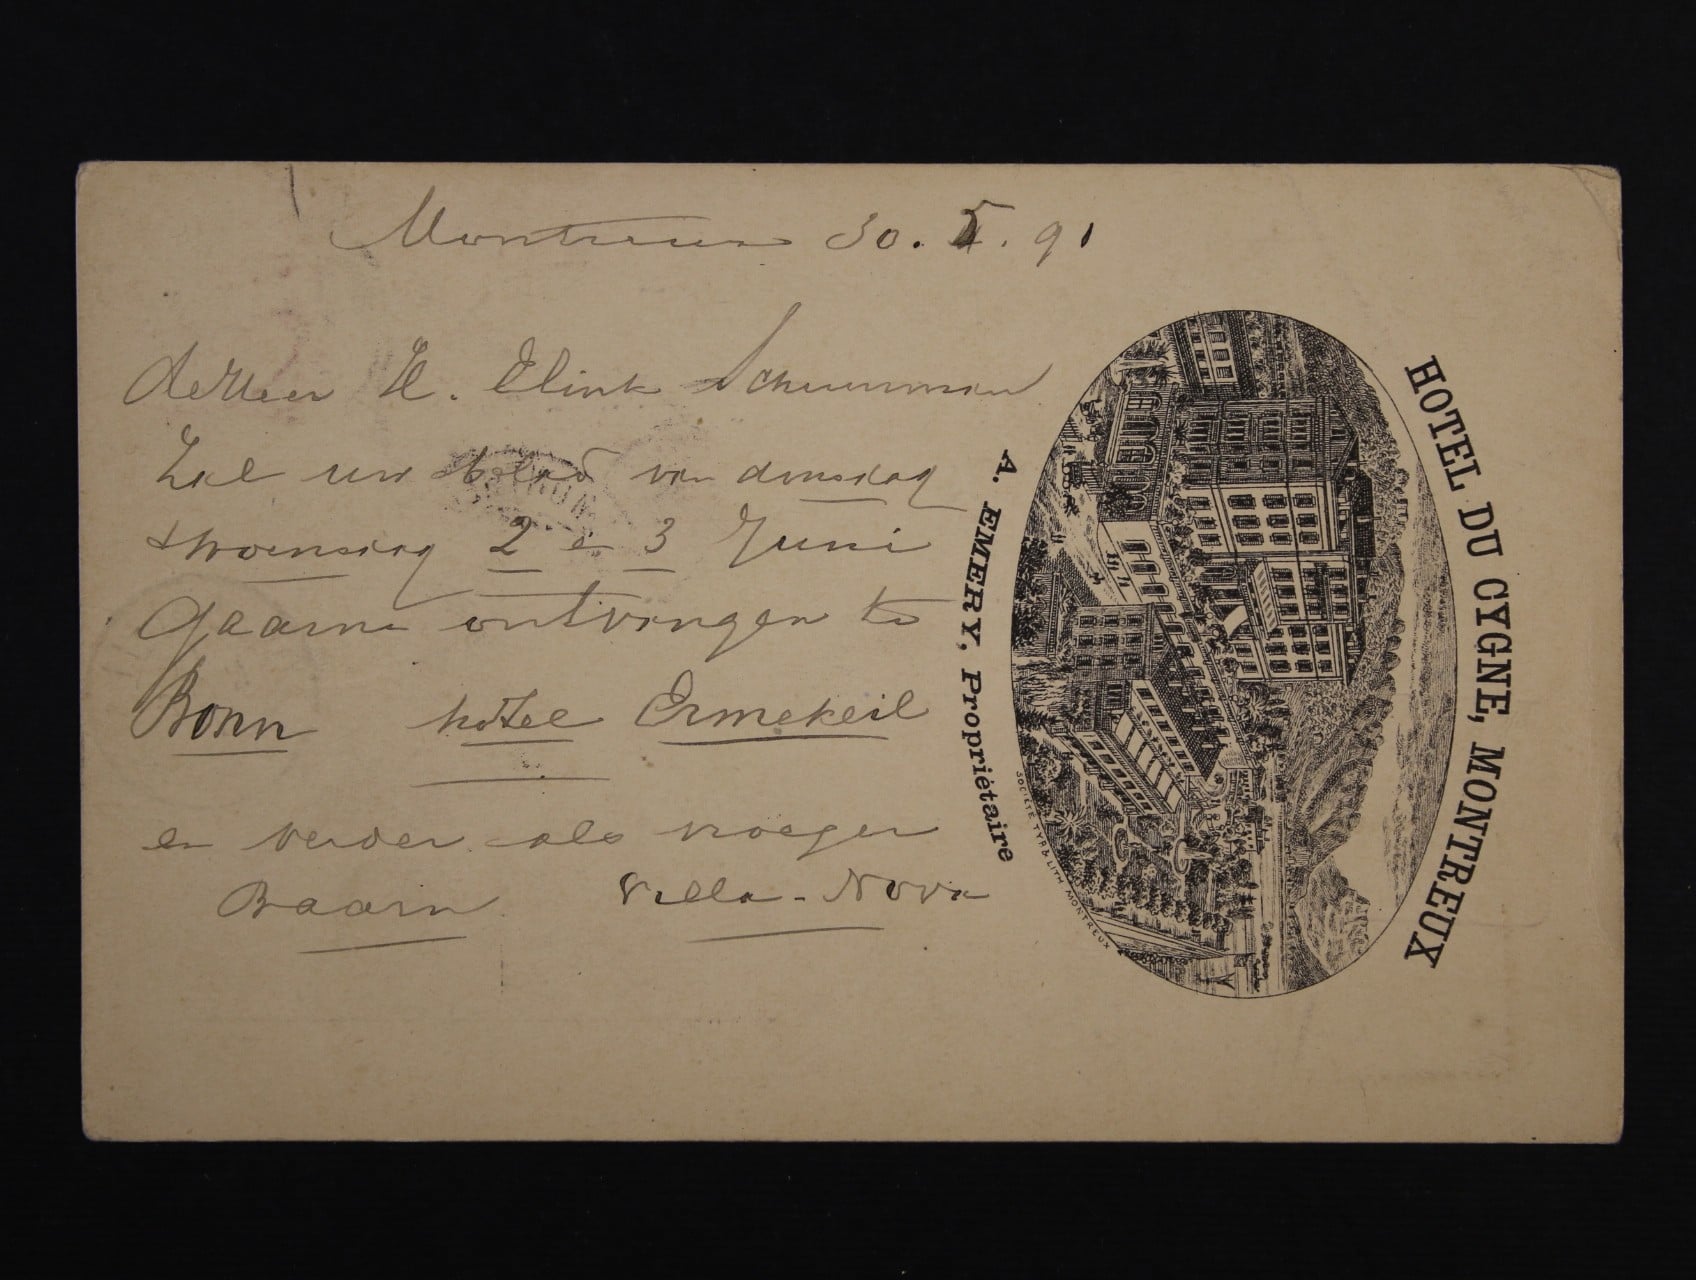 Montreux 30. 5. 91
de Heer H. Elink Schuurman
Zal uw blad van dinsdag
& woensdag 2 en 3 Juni
Gaarne ontvangen te
Bonn hôtel Ermekeil
en verder als vroeger
Baarn Villa-Nova
HOTEL DU CYGNE, MONTREUX
A. EMERY, Propriétaire
SOCIÉTÉ TYP. & LITH. MONTREUX